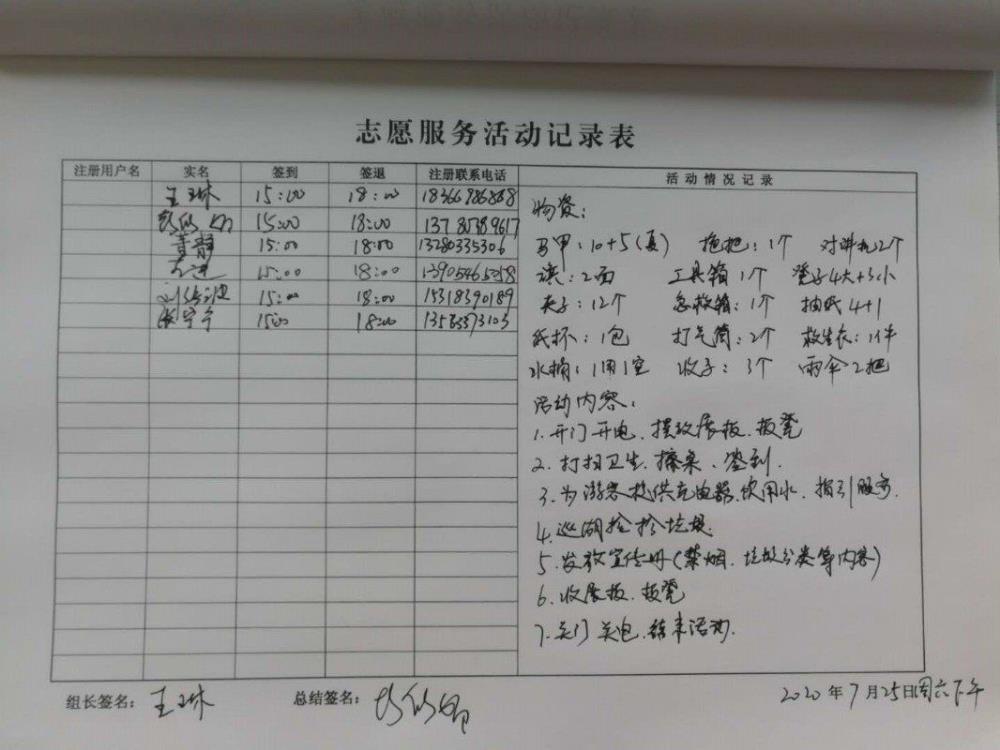 志愿服务活动记录表
注册用户名 实名 签到 签退 注册联系电话 活动情况记录
王琳 15:00 18:00
15:00 18:00 13780789617
青静 15:00 18:00 13280335306
15:00 18:00 13905465058
15:00 18:00 15318390189
张宁宁 15:00 18:00
物资:
马甲:10+5(夏) 拖把:1个 对讲机2个
旗:2面 工具箱1个 凳子4大+3小
夹子:12个 急救箱:1个 抽纸4+1
纸杯:1包 打气筒:2个 救生衣:1件
水桶:1用1空 收子:3个 雨伞2把
活动内容:
1.开门开电、摆放展板、板凳
2.打扫卫生、擦桌、签到.
3.为游客提供充电器、饮用水、指引服务.
4.巡湖捡拾垃圾.
5.发放宣传册(禁烟、垃圾分类等内容)
6.收展板、板凳
7.关门关电、结束活动.
组长签名:王琳 总结签名:
2020年7月25日周六下午